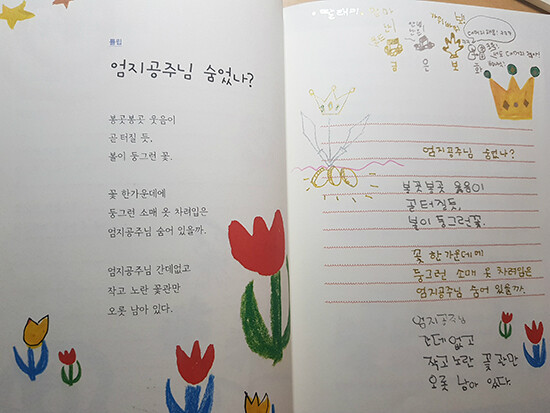 튤립
엄지공주님 숨었나?
봉긋봉긋 웃음이
곧 터질 듯,
볼이 둥그런 꽃.
꽃 한가운데에
둥그런 소매 옷 차려입은
엄지공주님 숨어 있을까.
엄지공주님 간데없고
작고 노란 꽃관만
오롯 남아 있다.
금 은 보
엄지공주님 숨었나?
봉긋봉긋 웃음이
곧 터질듯,
볼이 둥그런꽃.
꽃 한가운데에
둥그런 소매 옷 차려입은
엄지공주님 숨어 있을까.
엄지공주님
간데없고
작고 노란 꽃관만
오롯 남아 있다.